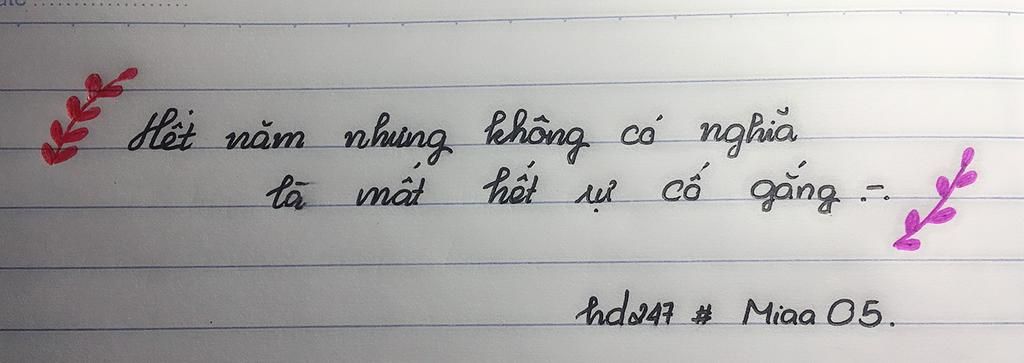 Hết năm nhưng không có nghĩa
là mất hết sự cố gắng -.
hd247 # Miaa 05.